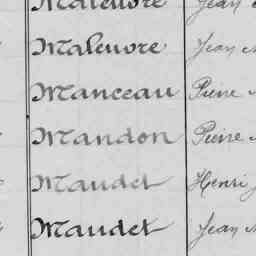 Maleuvre Jean
Maleuvre Jean
Manceau Pierre
Mandon Pierre
Maudet Henri
Maudet Jean